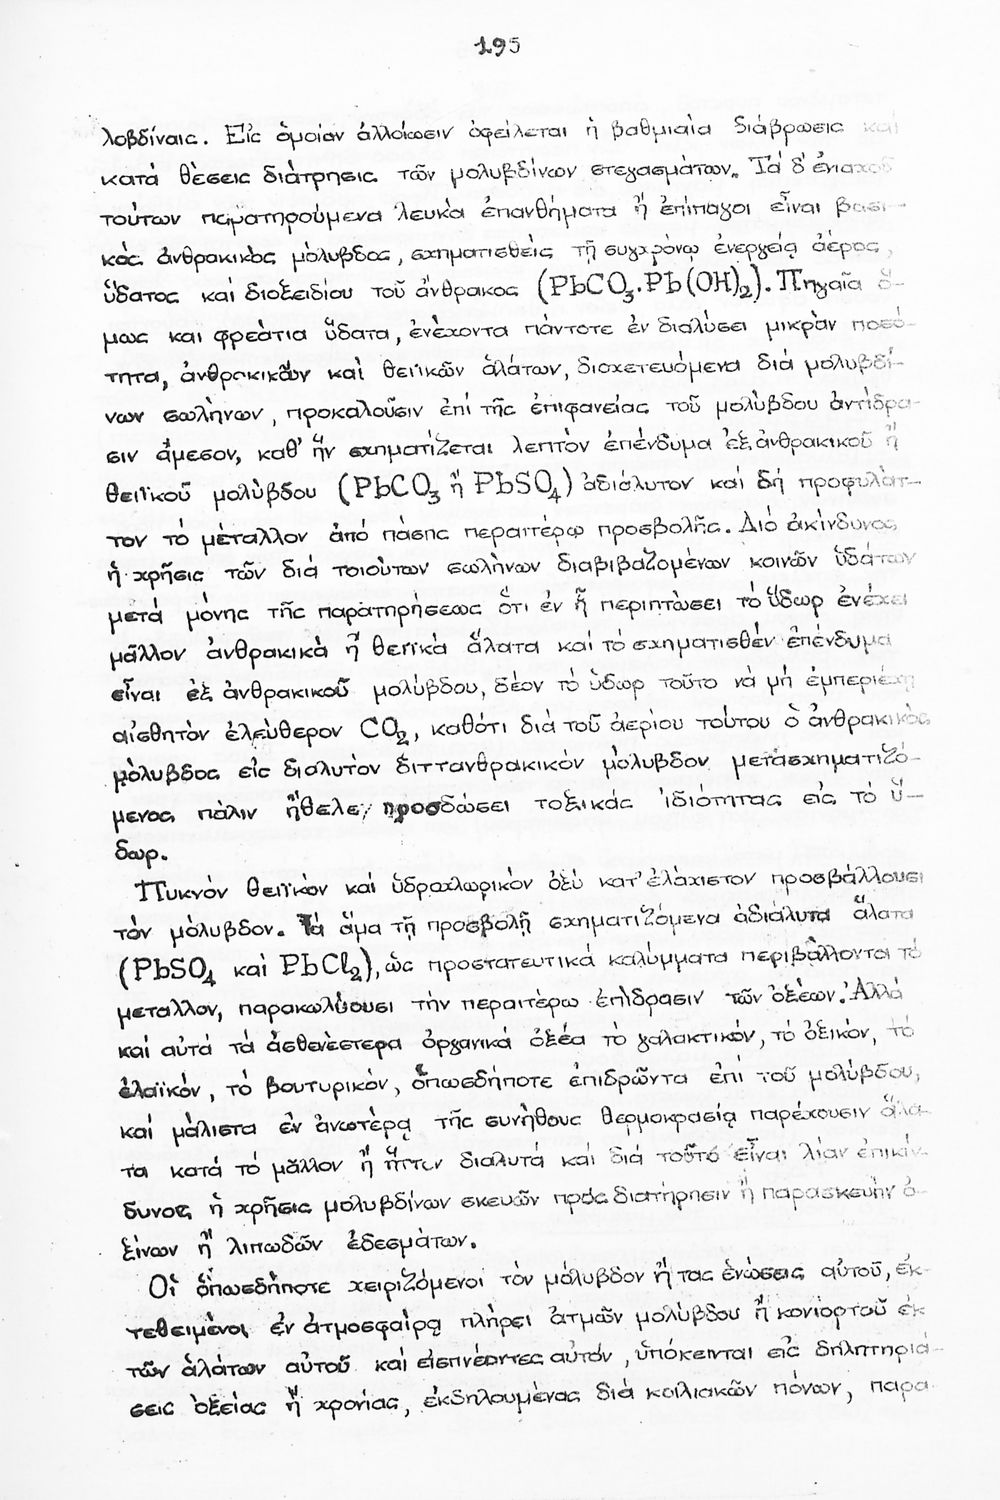 195
λοβδίναις. Εἰς ὁμοίαν ἀλλοίωσιν ὀφείλεται ἡ βαθμιαία διάβρωσις καί
κατά θέσεις διάτρησις τῶν μολυβδίνων στεγασμάτων. Τά δ' ἐνιαχοῦ
τούτων παρατηρούμενα λευκά ἐπανθήματα ἤ ἐπίπαγοι εἶναι βασι-
κός ἀνθρακικός μόλυβδος, σχηματισθείς τῇ συγχρόνῳ ἐνεργείᾳ ἀέρος,
ὕδατος καί διοξειδίου τοῦ ἄνθρακος (PbCO₃.Pb(OH)₂). Πηγαῖα ὅ-
μως καί φρεάτια ὕδατα, ἐνέχοντα πάντοτε ἐν διαλύσει μικράν ποσό-
τητα, ἀνθρακικῶν καί θειϊκῶν ἁλάτων, διοχετευόμενα διά μολυβδί-
νων σωλήνων, προκαλοῦσιν ἐπί τῆς ἐπιφανείας τοῦ μολύβδου ἀντίδρα-
σιν ἄμεσον, καθ' ἥν σχηματίζεται λεπτόν ἐπένδυμα ἐξ ἀνθρακικοῦ ἤ
θειϊκοῦ μολύβδου (PbCO₃ ἤ PbSO₄) ἀδιάλυτον καί δή προφυλάτ-
τον τό μέταλλον ἀπό πάσης περαιτέρω προσβολῆς. Διό ἀκίνδυνος
ἡ χρῆσις τῶν διά τοιούτων σωλήνων διαβιβαζομένων κοινῶν ὑδάτων
μετά μόνης τῆς παρατηρήσεως ὅτι ἐν ᾗ περιπτώσει τό ὕδωρ ἐνέχει
μᾶλλον ἀνθρακικά ἤ θειϊκά ἅλατα καί τό σχηματισθέν ἐπένδυμα
εἶναι ἐξ ἀνθρακικοῦ μολύβδου, δέον τό ὕδωρ τοῦτο νά μή ἐμπεριέχῃ
αἰσθητόν ἐλεύθερον CO₂, καθότι διά τοῦ ἀερίου τούτου ὁ ἀνθρακικός
μόλυβδος εἰς διαλυτόν διττανθρακικόν μόλυβδον μετασχηματιζό-
μενος πάλιν ἤθελε προσδώσει τοξικάς ἰδιότητας εἰς τό ὕ-
δωρ.
Πυκνόν θειϊκόν καί ὑδροχλωρικόν ὀξύ κατ' ἐλάχιστον προσβάλλουσι
τόν μόλυβδον. Τά ἅμα τῇ προσβολῇ σχηματιζόμενα ἀδιάλυτα ἅλατα
(PbSO₄ καί PbCl₂), ὡς προστατευτικά καλύμματα περιβάλλοντα τό
μεταλλον, παρακωλύουσι τήν περαιτέρω ἐπίδρασιν τῶν ὀξέων. Ἀλλά
καί αὐτά τά ἀσθενέστερα ὀργανικά ὀξέα τό γαλακτικόν, τό ὀξικόν, τό
ἐλαϊκόν, τό βουτυρικόν, ὁπωσδήποτε ἐπιδρῶντα ἐπί τοῦ μολύβδου,
καί μάλιστα ἐν ἀνωτέρᾳ τῆς συνήθους θερμοκρασίᾳ παρέχουσιν ἅλα-
τα κατά τό μᾶλλον ἤ ἧττον διαλυτά καί διά τοῦτό εἶναι λίαν ἐπικίν-
δυνος ἡ χρῆσις μολυβδίνων σκευῶν πρός διατήρησιν ἤ παρασκευήν ὀ-
ξίνων ἤ λιπωδῶν ἐδεσμάτων.
Οἱ ὁπωσδήποτε χειριζόμενοι τόν μόλυβδον ἤ τας ἑνώσεις αὐτοῦ, ἐκ-
τεθειμένοι ἐν ἀτμοσφαίρᾳ πλήρει ἀτμῶν μολύβδου ἤ κονιορτοῦ ἐκ
τῶν ἁλάτων αὐτοῦ καί εἰσπνέοντες αὐτόν, ὑπόκεινται εἰς δηλητηριά-
σεις ὀξείας ἤ χρονίας, ἐκδηλουμένας διά κοιλιακῶν πόνων, παρα-